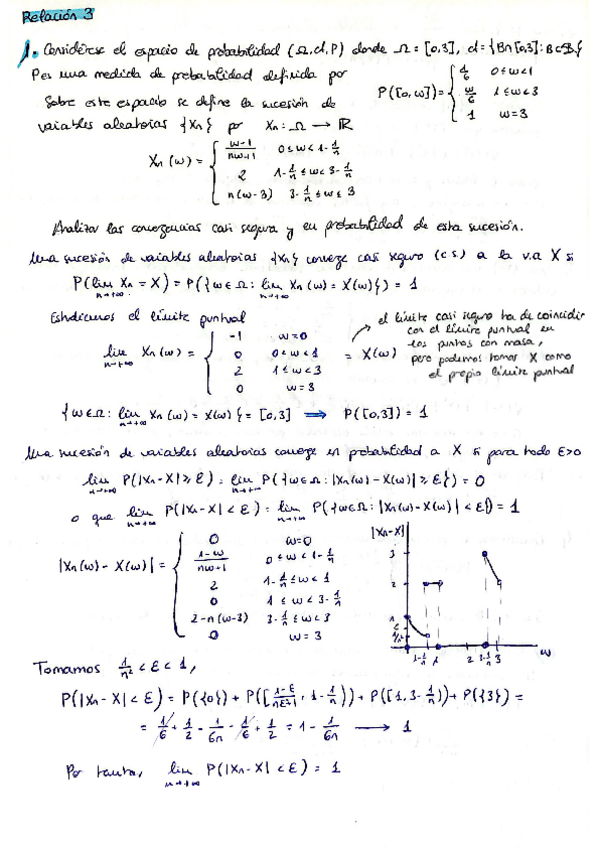 Relación 3
1. Considérese el espacio de probabilidad (Ω, A, P) donde Ω = [0,3], A = {B∩[0,3] : B∈B}
P es una medida de probabilidad definida por P([0,ω]) = { 1/6 0≤ω<1
ω/6 1≤ω<3
1 ω=3
Sobre este espacio se define la sucesión de
variables aleatorias {Xn} por Xn : Ω → ℝ
Xn(ω) = { ω-1/nω+1 0≤ω<1-1/n
2 1-1/n≤ω<3-1/n
n(ω-3) 3-1/n≤ω≤3
Analizar las convergencias casi segura y en probabilidad de esta sucesión.
Una sucesión de variables aleatorias {Xn} converge casi seguro (c.s.) a la v.a X si
P(lim n→+∞ Xn = X) = P({ω∈Ω : lim n→+∞ Xn(ω) = X(ω)}) = 1
Estudiemos el límite puntual
lim n→+∞ Xn(ω) = { -1 ω=0
0 0<ω<1
2 1≤ω<3
0 ω=3
= X(ω)
el límite casi seguro ha de coincidir
con el límite puntual en
los puntos con masa,
pero podemos tomar X como
el propio límite puntual
{ω∈Ω : lim n→+∞ Xn(ω) = X(ω)} = [0,3] ⟹ P([0,3]) = 1
Una sucesión de variables aleatorias converge en probabilidad a X si para todo ε>0
lim n→+∞ P(|Xn-X|≥ε) = lim n→+∞ P({ω∈Ω : |Xn(ω)-X(ω)|≥ε}) = 0
o que lim n→+∞ P(|Xn-X|<ε) = lim n→+∞ P({ω∈Ω : |Xn(ω)-X(ω)|<ε}) = 1
|Xn(ω)-X(ω)| = { 0 ω=0
1-ω/nω+1 0≤ω<1-1/n
2 1-1/n≤ω<1
0 1≤ω<3-1/n
2-n(ω-3) 3-1/n≤ω<3
0 ω=3
|Xn-X|
3
2
1
ε
1-1/n 1 2 3-1/n 3 ω
Tomamos 1/n² < ε < 1,
P(|Xn-X|<ε) = P({0}) + P([1-ε/nε+1, 1-1/n)) + P([1, 3-1/n)) + P({3}) =
= 1/6 + 1/2 - 1/6n - 1/6 + 1/2 = 1 - 1/6n → 1
Por tanto, lim n→+∞ P(|Xn-X|<ε) = 1